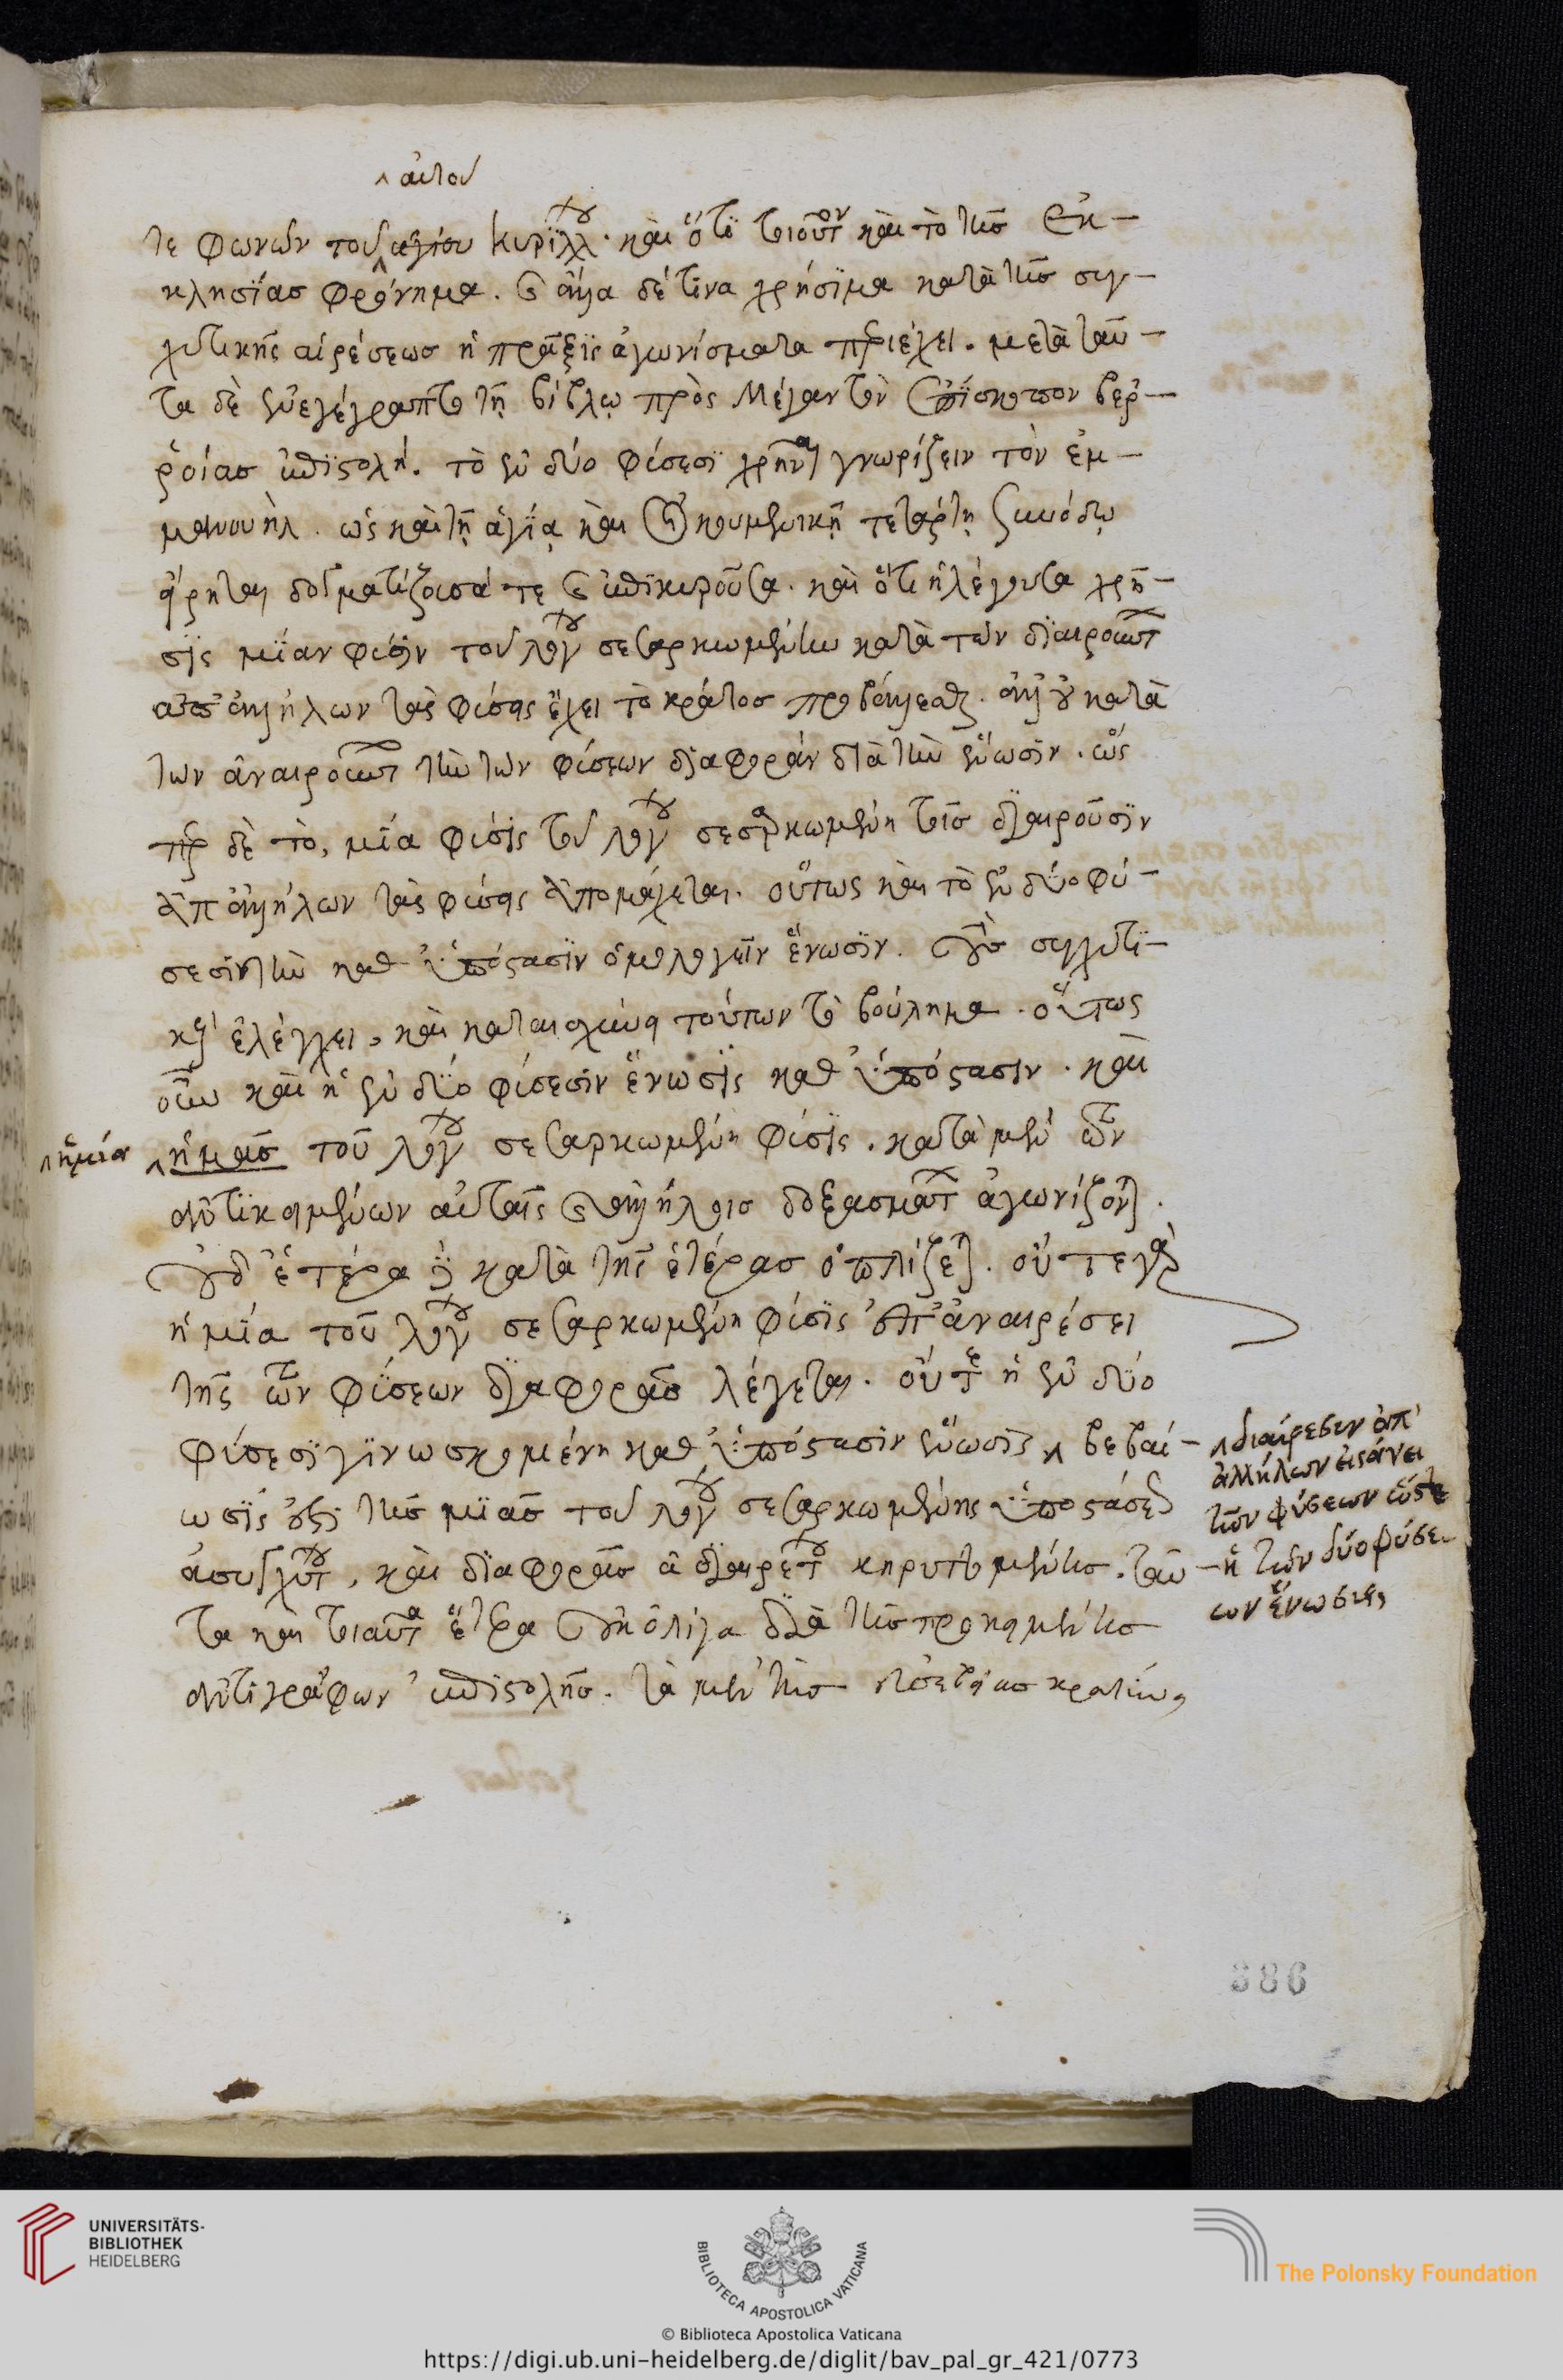 ^ αὐτοῦ
τε φωνῶν τοῦ ἁγίου Κυρίλλου. καὶ ὅτι τοιοῦτον καὶ τὸ τῆς ἐκ-
κλησίας φρόνημα. καὶ ἄλλα δέ τινα χρήσιμα κατὰ τῆς συγ-
χυτικῆς αἱρέσεως ἡ πρᾶξις ἀγωνίσματα περιέχει. μετὰ ταῦ-
τα δὲ ἐνεγέγραπτο τῇ βίβλῳ πρὸς Μέγαν τὸν ἐπίσκοπον βερ-
ροίας ἐπιστολή. τὸ ἐν δύο φύσεσι χρῆναι γνωρίζειν τὸν ἐμ-
μανουήλ. ὡς καὶ τῇ ἁγίᾳ καὶ οἰκουμενικῇ τετάρτῃ συνόδῳ
εἴρηται δογματίζουσά τε καὶ ἐπικυροῦσα. καὶ ὅτι ἡ λέγουσα χρῆ-
σις μίαν φύσιν τοῦ λόγου σεσαρκωμένην κατὰ τῶν διαιρούντων
ἀπ' ἀλλήλων τὰς φύσεις ἔχει τὸ κράτος προβάλλεσθαι. ἀλλ' οὐ κατὰ
τῶν ἀναιρούντων τὴν τῶν φύσεων διαφορὰν διὰ τὴν ἕνωσιν. ὥς
περ δὲ τὸ, μία φύσις τοῦ λόγου σεσαρκωμένη τοῖς διαιροῦσιν
ἀπ' ἀλλήλων τὰς φύσεις ἀπομάχεται. οὕτως καὶ τὸ ἐν δύο φύ-
σεσιν τὴν καθ' ὑπόστασιν ὁμολογεῖν ἕνωσιν. τοὺς συγχυτι-
κοὺς ἐλέγχει, καὶ καταισχύνει τούτων τὸ βούλημα. οὕτως
οὖν καὶ ἡ ἐν δύο φύσεσιν ἕνωσις καθ' ὑπόστασιν. καὶ
^ ἡ μία
^ ἡμᾶς τοῦ λόγου σεσαρκωμένη φύσις. κατὰ μὲν τῶν
ἀντικειμένων αὐταῖς καὶ ἀλλήλοις δοξασμάτων ἀγωνίζονται.
οὐδ' ἑτέρα δὲ κατὰ τῆς ἑτέρας ὁπλίζεται. οὔτε γὰρ
ἡ μία τοῦ λόγου σεσαρκωμένη φύσις ἐπ' ἀναιρέσει
τῆς τῶν φύσεων διαφορᾶς λέγεται. οὔτε ἡ ἐν δύο
φύσεσι γινωσκομένη καθ' ὑπόστασιν ἕνωσις ^ βεβαί-
^ διαίρεσιν ἀπ'
ἀλλήλων εἰσάγει
τῶν φύσεων ὥστε
ἡ τῶν δύο φύσε
ων ἕνωσις
ωσίς ἐστι τῆς μιᾶς τοῦ λόγου σεσαρκωμένης ὑποστάσεως
ἀσυγχύτου, καὶ διαφορᾶς ἀδιαιρέτου κηρυττομένης. ταῦ-
τα καὶ τοιαῦτα ἕτερα οὐκ ὀλίγα διὰ τῆς προκειμένης
ἀντιγράφων ἐπιστολῆς. τὰ μὲν τῆς εὐσεβείας κρατύνει
386
UNIVERSITÄTS-
BIBLIOTHEK
HEIDELBERG
BIBLIOTECA APOSTOLICA VATICANA
The Polonsky Foundation
© Biblioteca Apostolica Vaticana
https://digi.ub.uni-heidelberg.de/diglit/bav_pal_gr_421/0773